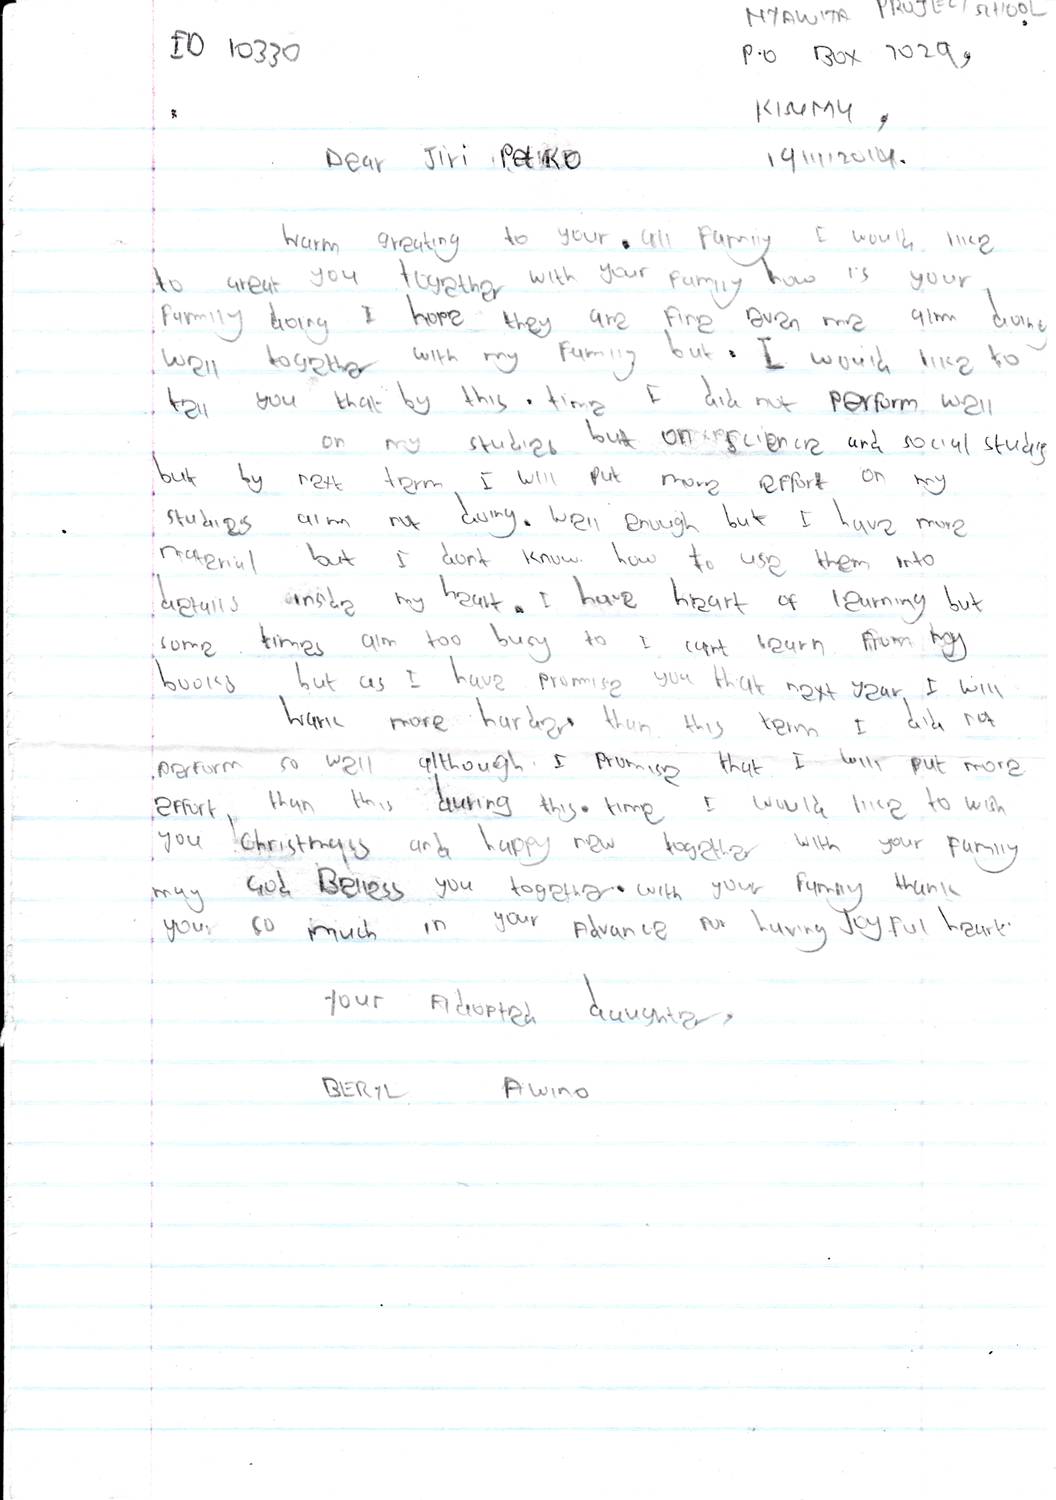 NYAWITA PROJECT SCHOOL
ID 10330
P.O BOX 7029,
KISUMU,
Dear Jiri
19/11/2014.
Warm greating to your. all Family I would like
to great you together with your family how is your
Family doing I hope they are fine even me aim doing
well together with my Family but. I would like to
tell you that by this. time I did not perform well
on my studies but on science and social studies
but by next term I will put more effort on my
studies aim not doing. well enough but I have more
material but I dont know how to use them into
details inside my heart. I have heart of learning but
some times aim too busy to I cant learn from my
books but as I have promise you that next year I will
work more harder. than this term I did not
perform so well although I promise that I will put more
effort than this during this. time I would like to wish
you Christmass and happy new together with your family
may God Beless you together. with your family thank
your so much in your advance for having Joyful heart.
Your Adopted daughter,
BERYL AWINO